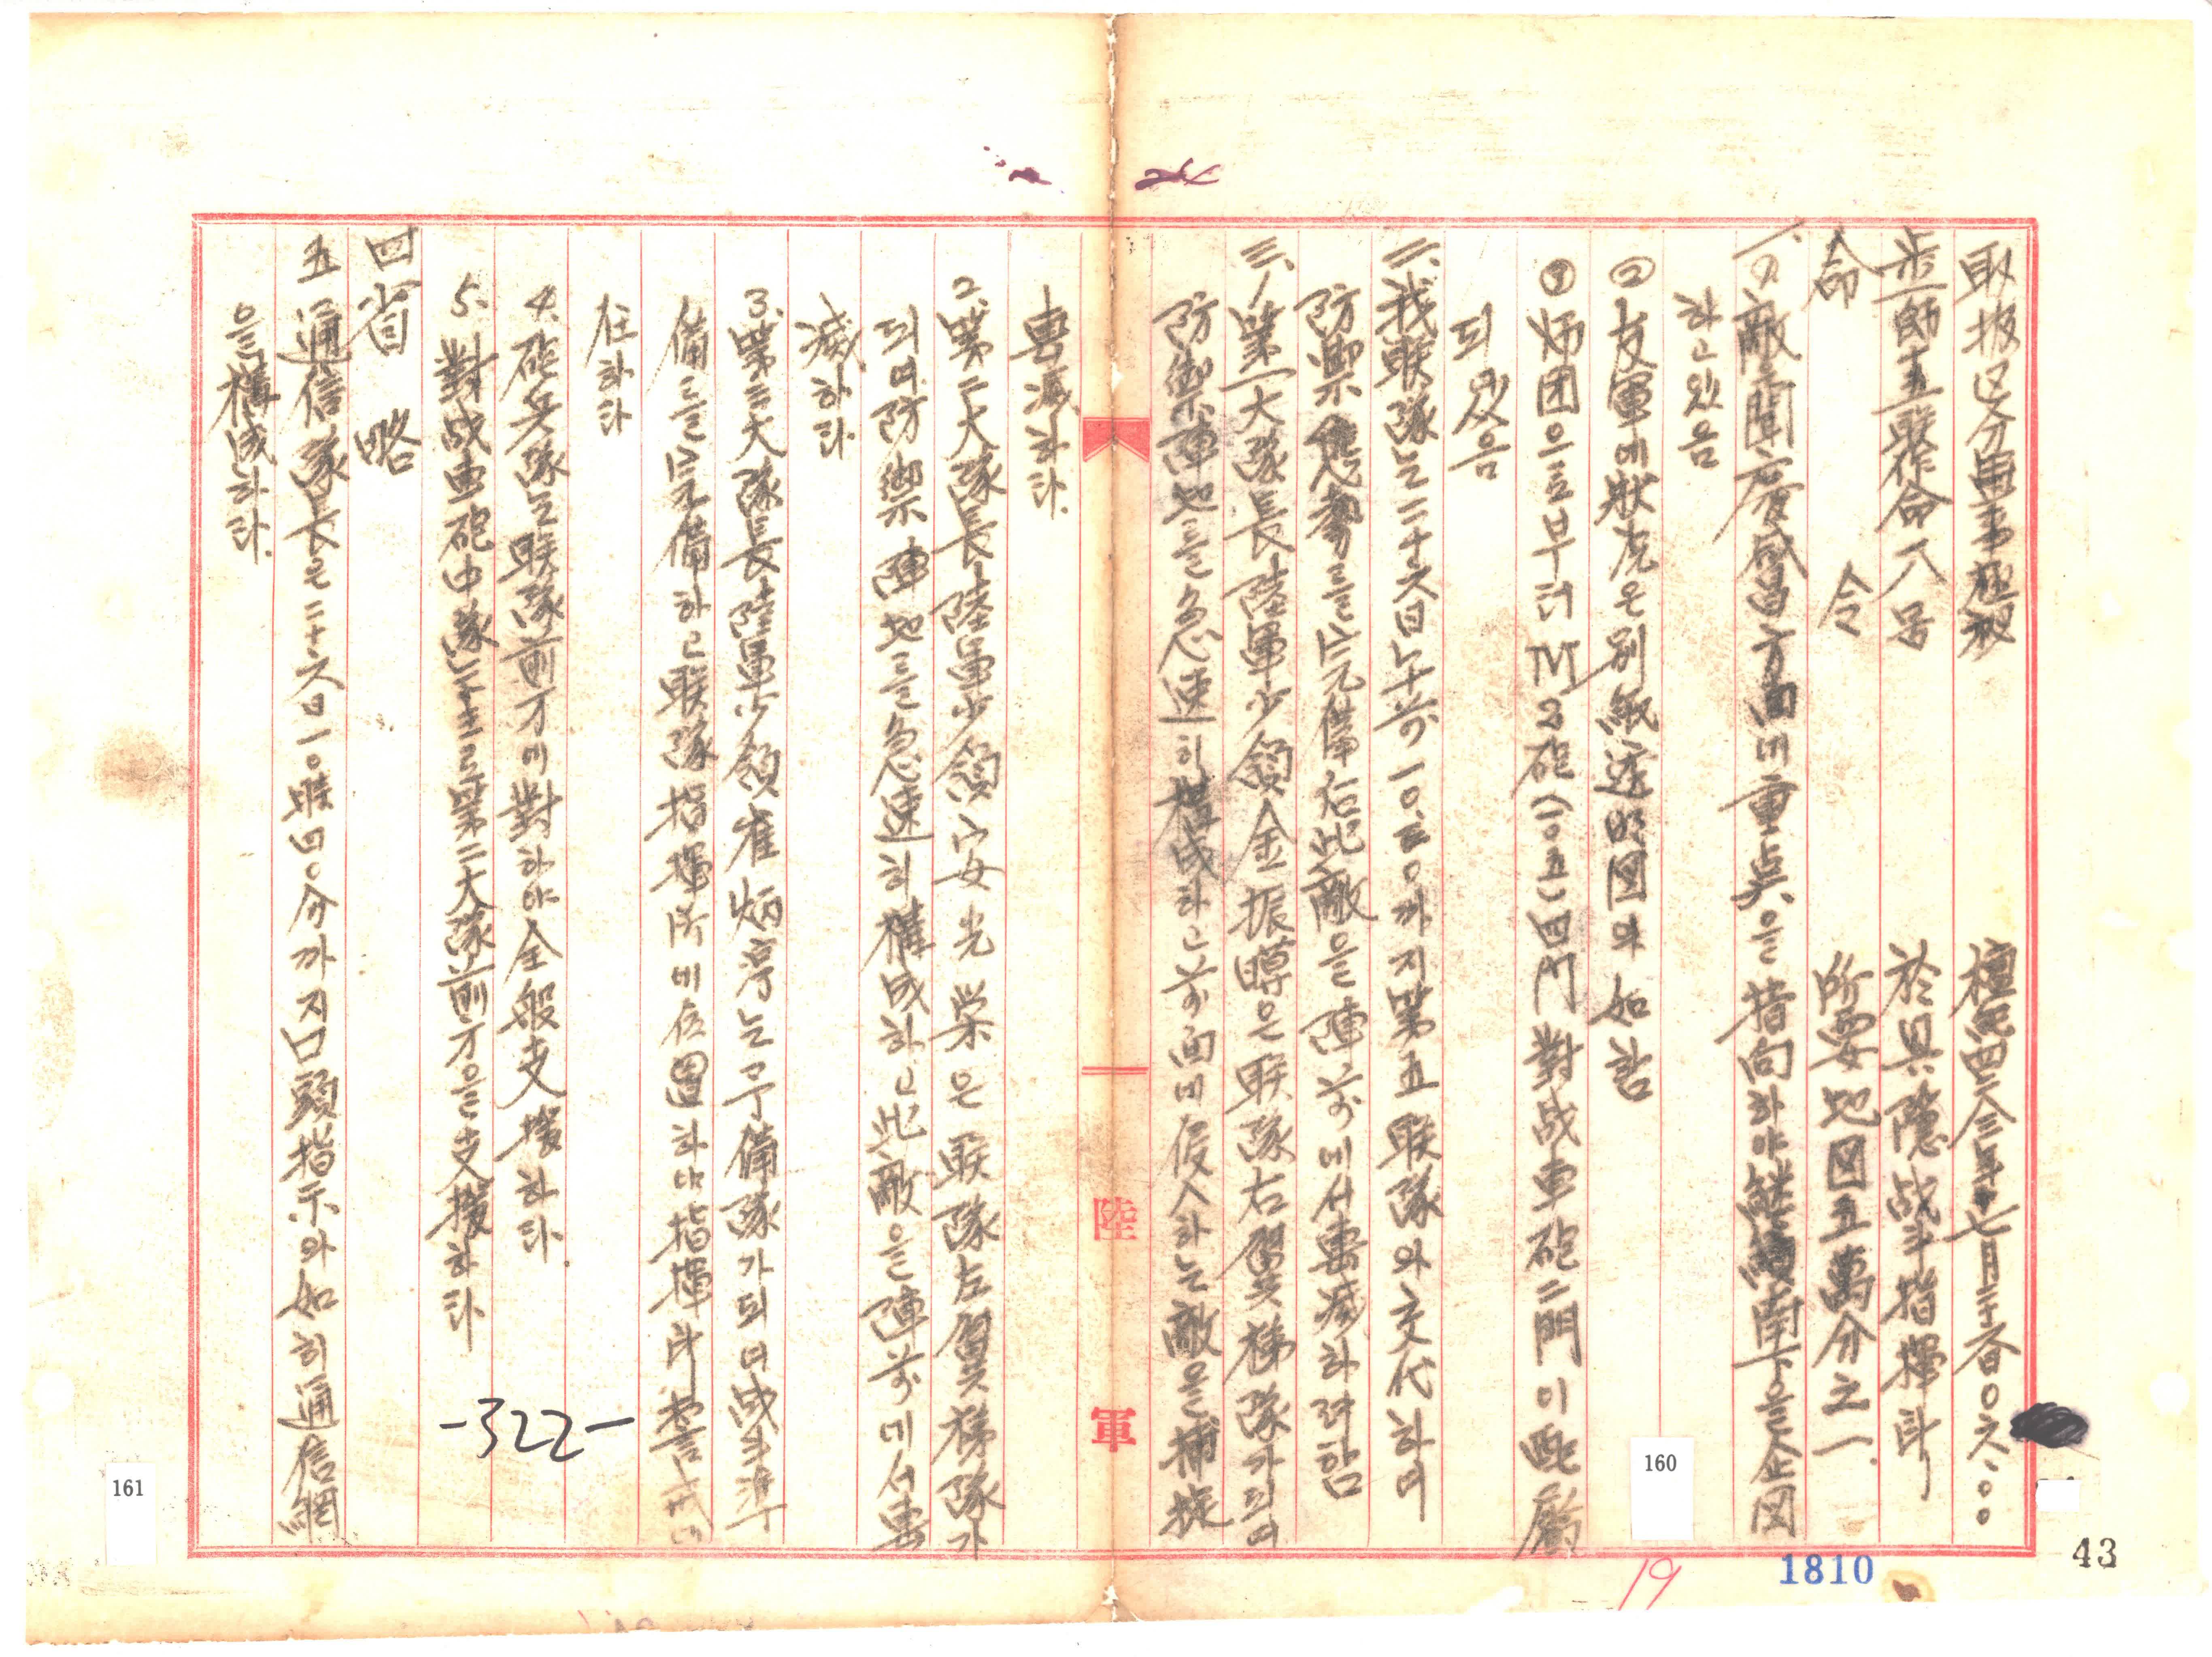 取扱区分 軍事極秘
檀紀四二八三年七月二十六日〇六:〇〇
步一師 五聯作命 八号
於 具隱 战斗指揮所
命 令
所要地図五萬分之一.
一、(1) 敵은 聞慶 咸昌方面에 重点을 指向하야 継續南下을 企図
하고 있음
② 友軍에 狀况은 別紙 透明図와 如홈
③ 师団으로부터 M2砲(一〇五) 四門 對战車砲 二門이 配屬
되였음
二、我 聯隊는 二十六日 午前 一〇.三〇까지 第五聯隊와 交代하며
防禦態勢를 完備 右 此 敵을 陣前에서 擊滅하려함
三、1 第一大隊長 陸軍少領 金振暲은 聯隊 右翼梯隊가 되며
防禦陣地를 急速히 構成하고 前面에 侵入하는 敵을 捕捉
擊滅하라.
2. 第二大隊長 陸軍少領 安光榮은 聯隊 左翼梯隊가
되며 防禦陣地를 急速히 構成하고 此敵을 陣前에서 擊
滅하라.
3. 第三大隊長 陸軍少領 崔炳淳는 予備隊가 되며 出動準
備를 完備하고 聯隊指揮所에 位置하야 指揮所 警戒에
任하라
4. 砲兵隊는 聯隊 前方에 對하야 全般 支援하라.
5. 對战車砲中隊는 主로 第二大隊 前方을 支援하라
四 省 略
五 通信隊長은 二十六日 一〇時 四〇分까지 口頭 指示와 如히 通信網
을 構成하라.
陸 軍
-322-
160
161
1810
19
43